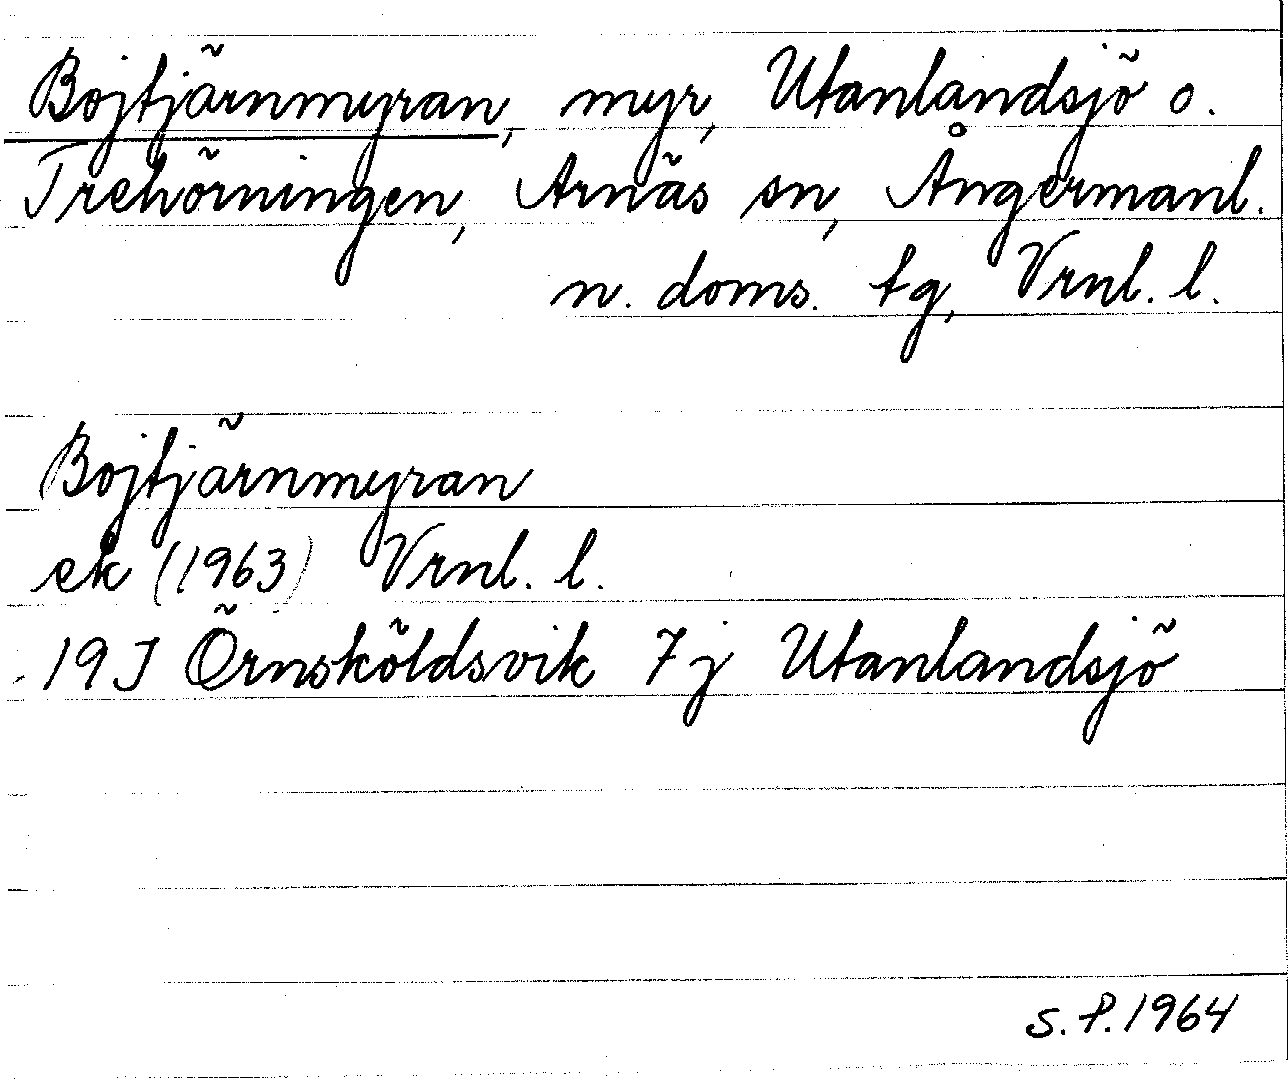 Bojtjärnmyran, myr, Utanlandsjö o.
Trehörningen, Arnäs sn, Ångermanl.
n. doms. tg, Vrnl. l.
Bojtjärnmyran
ek (1963) Vrnl. l.
19J Örnsköldsvik 7j Utanlandsjö
S.P. 1964